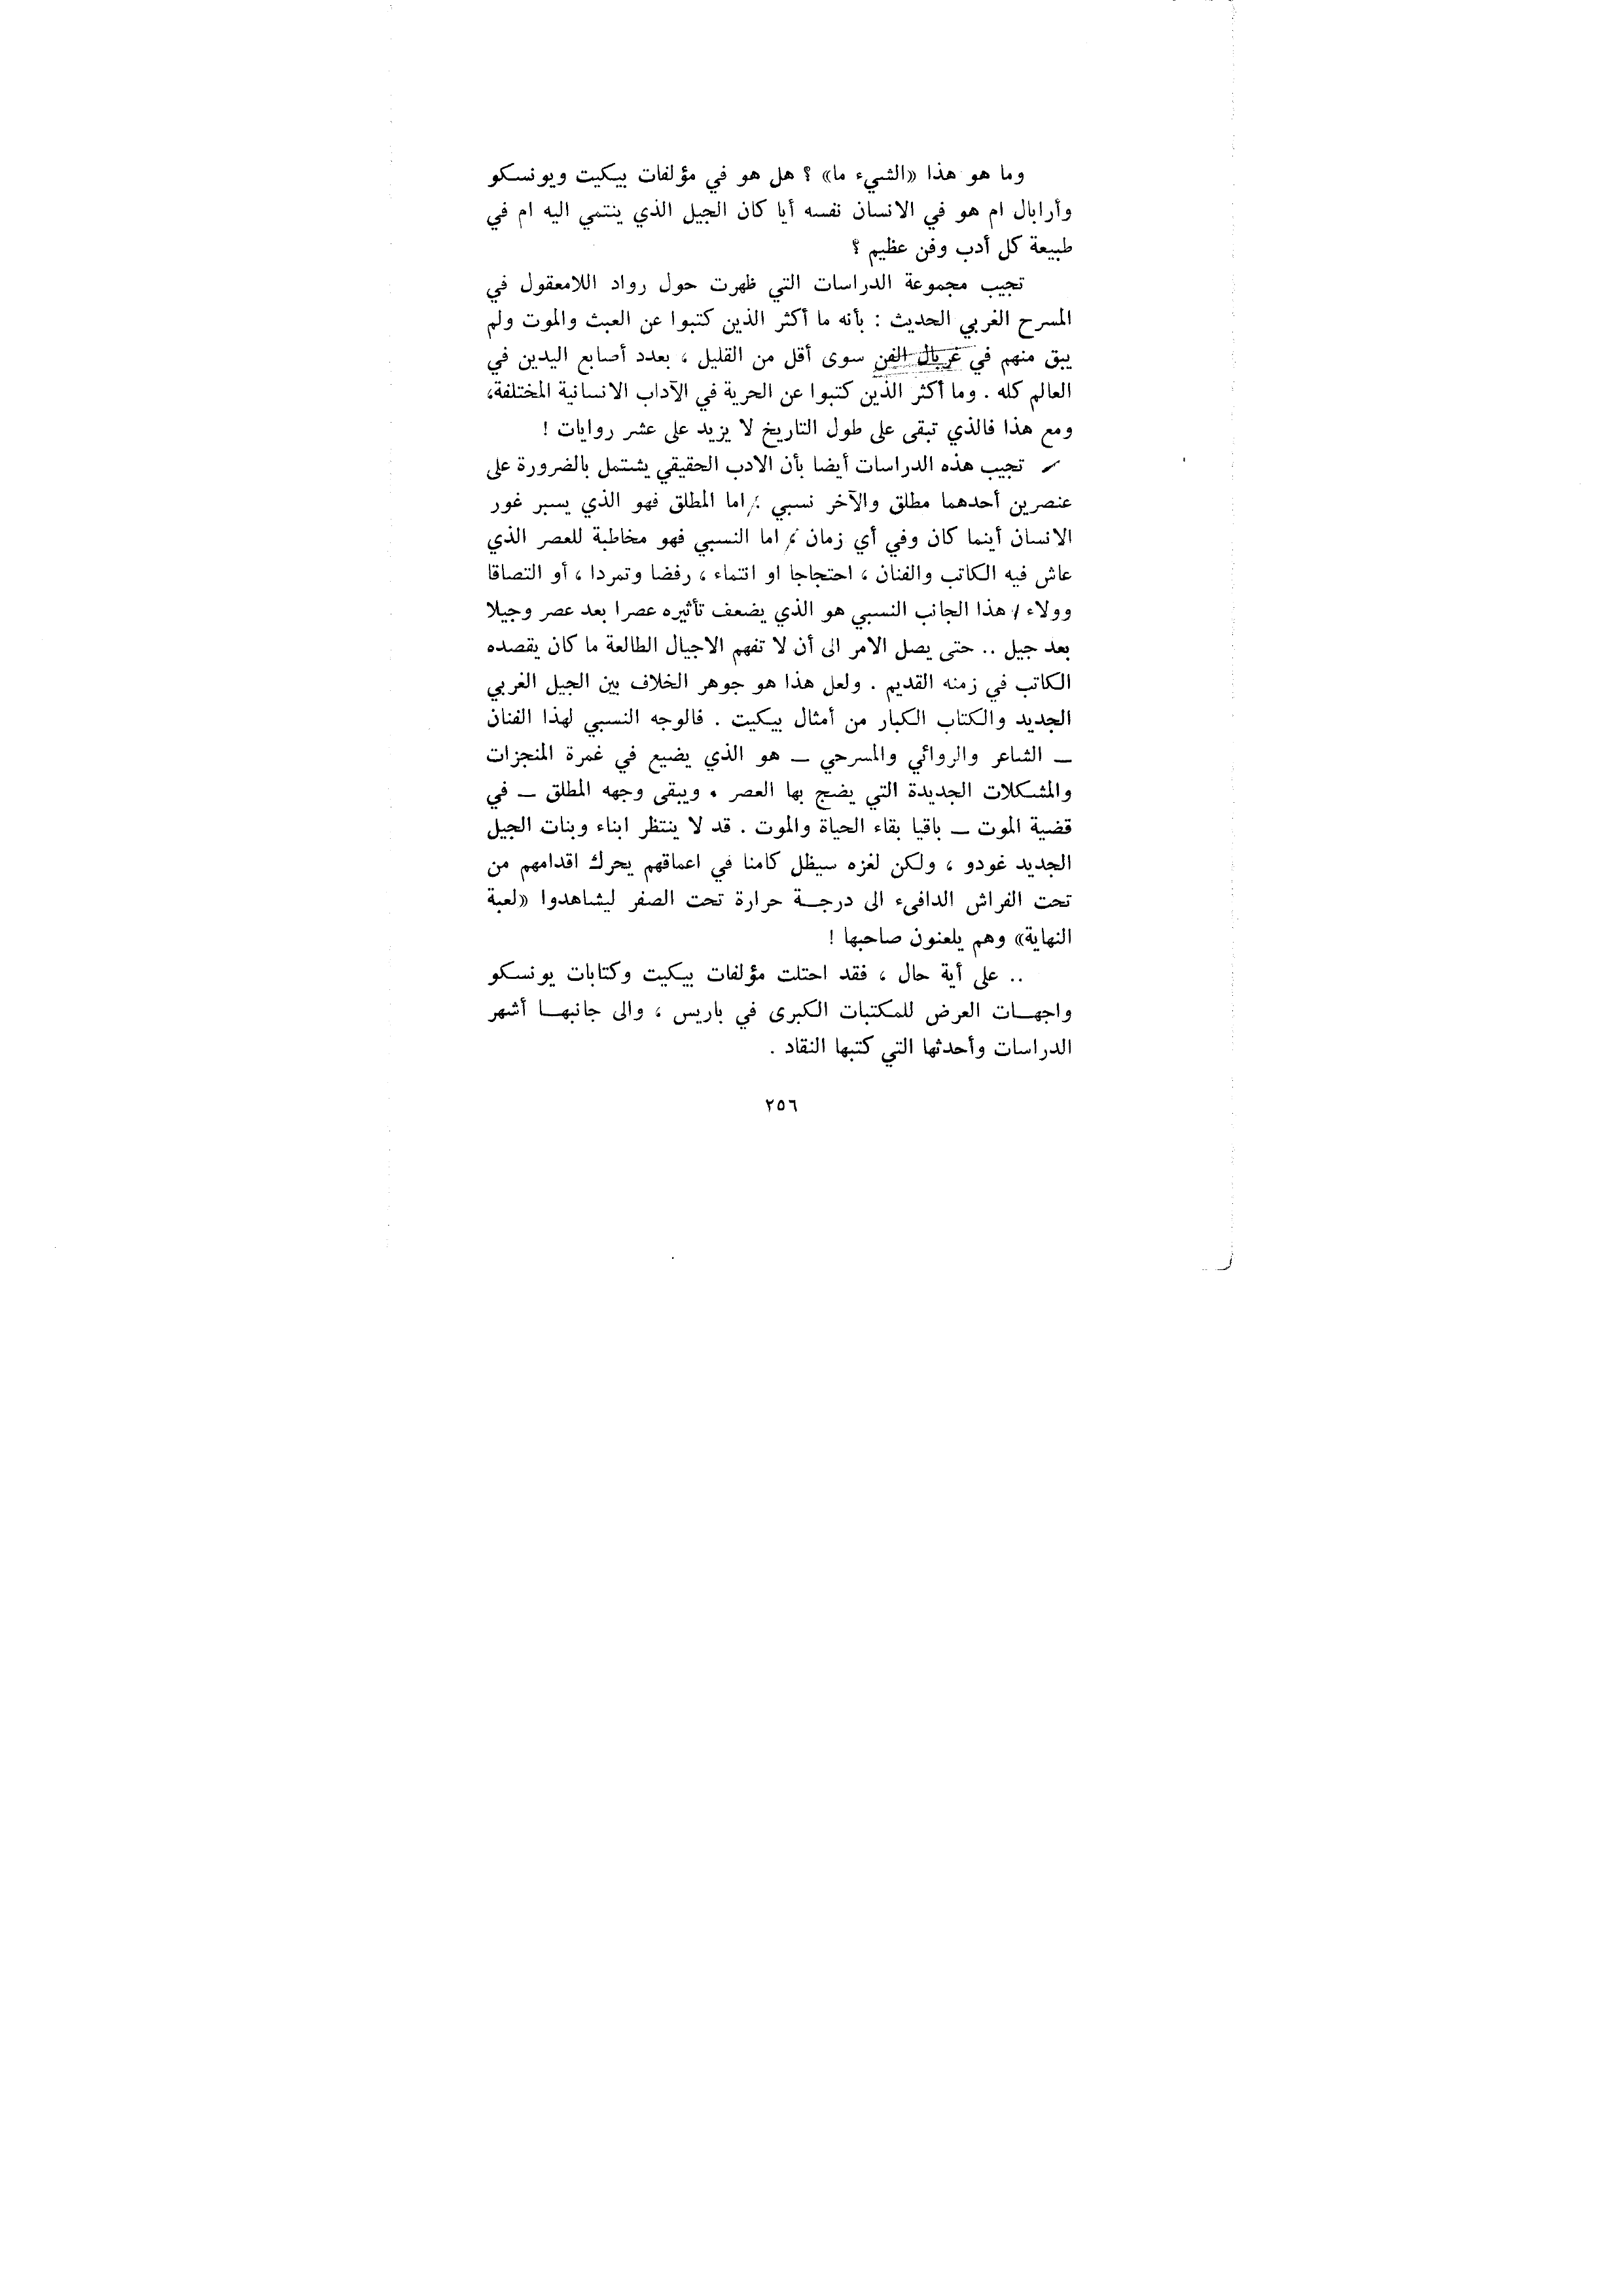 وما هو هذا «الشيء ما» ؟ هل هو في مؤلفات بيكيت ويونسكو
وأرابال ام هو في الانسان نفسه أيا كان الجيل الذي ينتمي اليه ام في
طبيعة كل أدب وفن عظيم ؟
تجيب مجموعة الدراسات التي ظهرت حول رواد اللامعقول في
المسرح الغربي الحديث : بأنه ما أكثر الذين كتبوا عن العبث والموت ولم
يبق منهم في غربال الفن سوى أقل من القليل ، بعدد أصابع اليدين في
العالم كله . وما أكثر الذين كتبوا عن الحرية في الآداب الانسانية المختلفة،
ومع هذا فالذي تبقى على طول التاريخ لا يزيد على عشر روايات !
تجيب هذه الدراسات أيضا بأن الادب الحقيقي يشتمل بالضرورة على
عنصرين أحدهما مطلق والآخر نسبي ؛ اما المطلق فهو الذي يسبر غور
الانسان أينما كان وفي أي زمان ، اما النسبي فهو مخاطبة للعصر الذي
عاش فيه الكاتب والفنان ، احتجاجا او انتماء ، رفضا وتمردا ، أو التصاقا
وولاء / هذا الجانب النسبي هو الذي يضعف تأثيره عصرا بعد عصر وجيلا
بعد جيل .. حتى يصل الامر الى أن لا تفهم الاجيال الطالعة ما كان يقصده
الكاتب في زمنه القديم . ولعل هذا هو جوهر الخلاف بين الجيل الغربي
الجديد والكتاب الكبار من أمثال بيكيت . فالوجه النسبي لهذا الفنان
ــ الشاعر والروائي والمسرحي ــ هو الذي يضيع في غمرة المنجزات
والمشكلات الجديدة التي يضج بها العصر . ويبقى وجهه المطلق ــ في
قضية الموت ــ باقيا بقاء الحياة والموت . قد لا ينتظر ابناء وبنات الجيل
الجديد غودو ، ولكن لغزه سيظل كامنا في اعماقهم يحرك اقدامهم من
تحت الفراش الدافىء الى درجــة حرارة تحت الصفر ليشاهدوا «لعبة
النهاية» وهم يلعنون صاحبها !
.. على أية حال ، فقد احتلت مؤلفات بيكيت وكتابات يونسكو
واجهــات العرض للمكتبات الكبرى في باريس ، والى جانبهــا أشهر
الدراسات وأحدثها التي كتبها النقاد .
٢٥٦